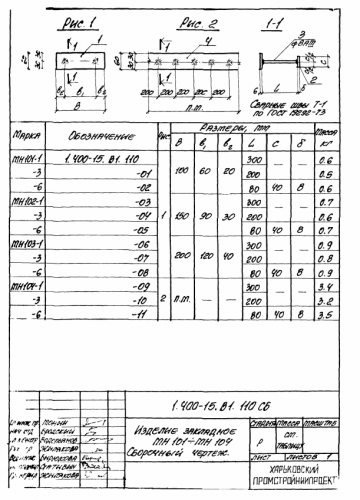 Рис. 1
Рис. 2
1-1
1
4
3
2
В
200 200 200 200 200
п.м.
Сварные швы Т-1
по ГОСТ 19292-73
Марка Обозначение Рис. Размеры, мм Масса кг
В в₁ в₂ L С δ
МН101-1 1.400-15. В1. 110 1 100 60 20 300 — — 0.6
-3 -01 200 0.5
-6 -02 80 40 8 0.6
МН102-1 -03 150 90 30 300 — — 0.7
-3 -04 200 0.6
-6 -05 80 40 8 0.7
МН103-1 -06 200 120 40 300 — — 0.9
-3 -07 200 0.8
-6 -08 80 40 8 0.9
МН104-1 -09 2 п.м. — — 300 — — 3.4
-3 -10 200 3.2
-6 -11 80 40 8 3.5
1.400-15. В1. 110 СБ
Изделие закладное
МН 101÷МН 104
Сборочный чертеж.
Стадия Масса Масштаб
Р см. таблицу
Лист Листов 1
ХАРЬКОВСКИЙ
ПРОМСТРОЙНИИПРОЕКТ